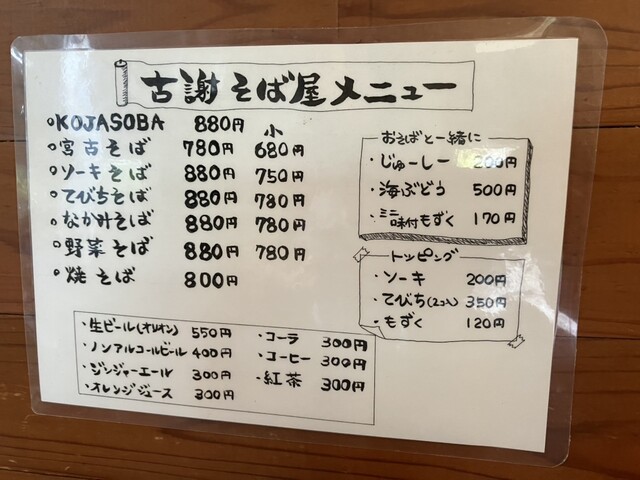 古謝そば屋メニュー
小
・KOJASOBA 880円
・宮古そば 780円 680円
・ソーキそば 880円 750円
・てびちそば 880円 780円
・なか汁そば 880円 780円
・野菜そば 880円 780円
・焼そば 800円
おそばと一緒に
・じゅーしー 200円
・海ぶどう 500円
・ミニ味付もずく 170円
トッピング
・ソーキ 200円
・てびち(2コ入) 350円
・もずく 120円
・生ビール(オリオン) 550円
・ノンアルコールビール 400円
・ジンジャーエール 300円
・オレンジジュース 300円
・コーラ 300円
・コーヒー 300円
・紅茶 300円